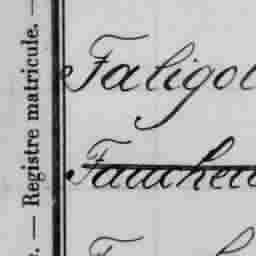 — Registre matricule. —
Faligot
Faucheu